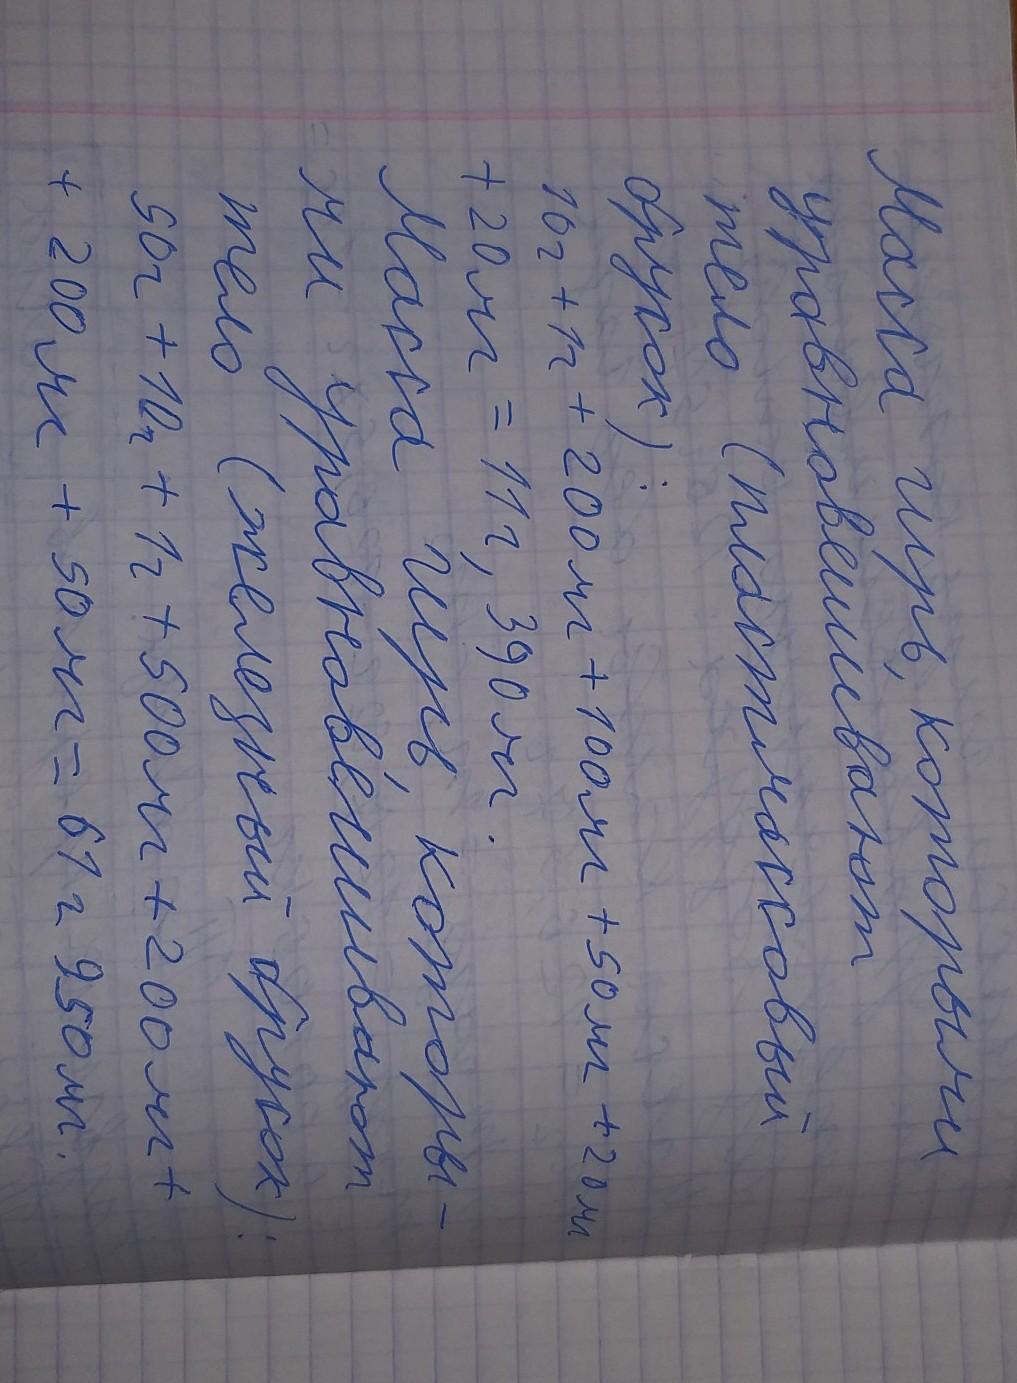 Масса гирь, которыми
уравновешивают
тело (пластмассовый
брусок):
10г + 1г + 200мг + 100мг + 50мг + 20мг
+ 20мг = 11г, 390мг.
Масса гирь, которы-
ми уравновешивают
тело (железный брусок):
50г + 10г + 1г + 500мг + 200мг +
+ 200мг + 50мг = 61г 950мг.